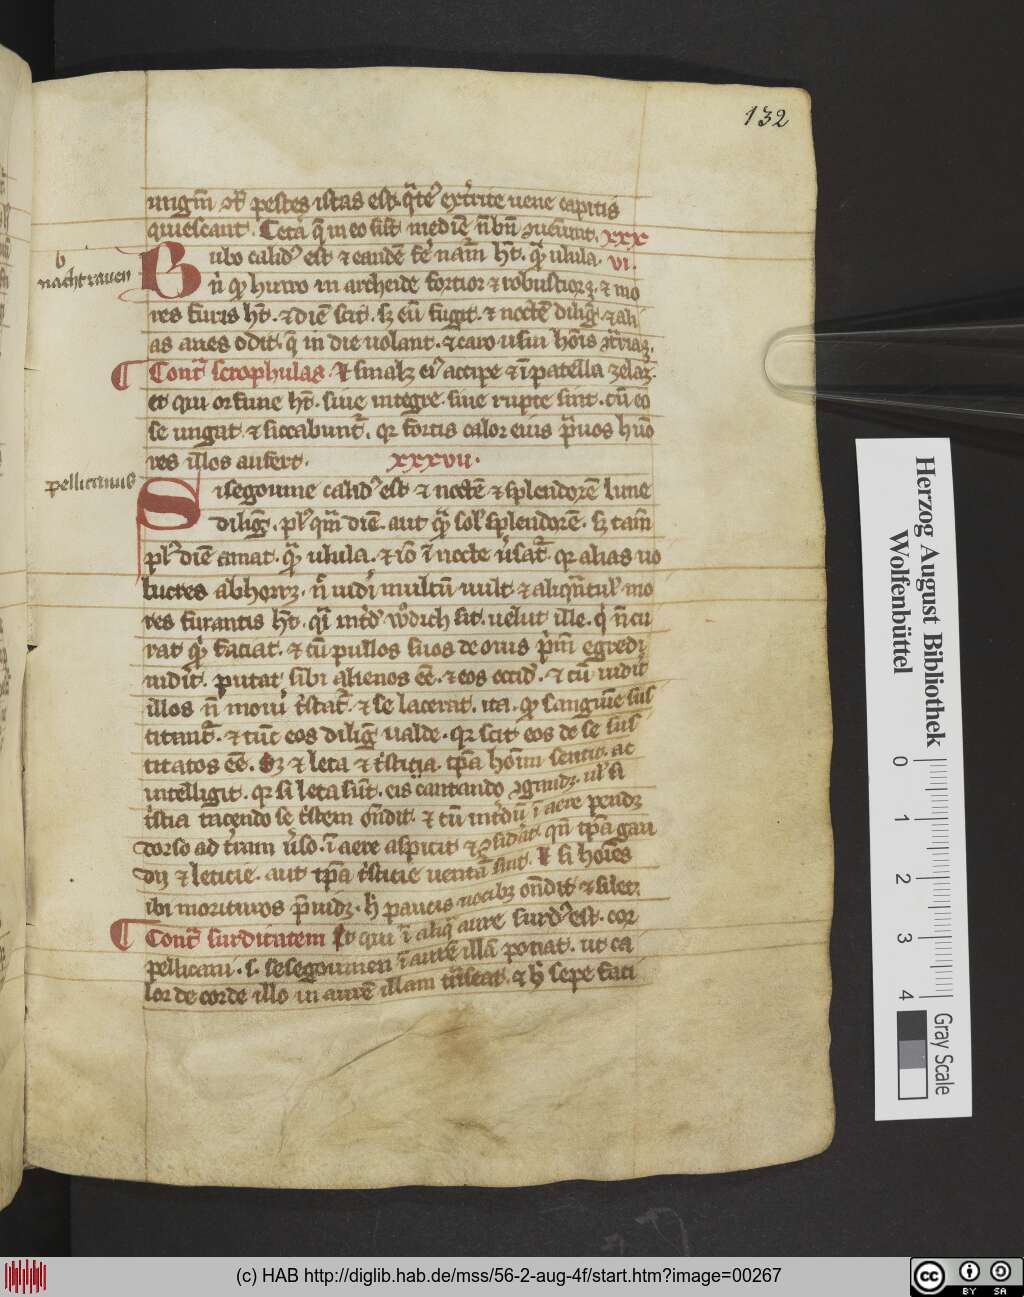 132
ungm̄ pestes istas est. extrite uene capitis
quiescant. Cetā q̄ in eo st̄ medic̄ n̄ bn̄ ɔueniunt. xxx
b
nachtrauen
Bubo calid⁹ est ⁊ eandē fere nām ht̄. q̄m ulula. vi.
n̄ qd̄ huwo in archeide fortior ⁊ robustior, ⁊ mo
res furis ht̄. ⁊ diē scit. sꝫ eū fugit. ⁊ noctē diliḡ. ⁊ ali
as aues odit. q̄ in die uolant. ⁊ caro usui hoīs
¶ Contͣ scrophulas. smalz ei⁹ accipe ⁊ ī patella zelaꝫ.
et qui orfune ht̄. siue integre siue rupte sint. cū eo
se ungat ⁊ siccabunt᷑. qꝛ fortis calor eius p̄uos hūo
res illos aufert. xxxvii.
pellicanus
Sisegoume calid⁹ est ⁊ noctē ⁊ splendorē lune
diliḡ. pl⁹ qm̄ diē aut solis splendorē. sꝫ tam̄
pl⁹ diē amat. ulula. ⁊ iō ī nocte ūsat᷑. qꝛ alias uo
lucres abhorrꝫ. n̄ uidi multū uult ⁊ aliqn̄tul⁹ mo
res furantis ht̄. wodich sit. uelut ille. q̄ n̄ cu
rat faciat. ⁊ cū pullos suos de ouis p̄m egredi
uidit. putat sibi alienos eē. ⁊ eos occid̄. ⁊ cū uidit
illos n̄ moui tͥstat᷑. ⁊ se lacerat. ita. qd̄ sanguīe sus
titant᷑. ⁊ tūc eos diliḡ ualde. qꝛ scit eos de se sus
titatos eē. Sꝫ ⁊ leta ⁊ tͥsticia. tp̄a hoīm sentit. ac
intelligit. qꝛ si leta sūt. eis cantando ul⁹ si
tͥstia tacendo se tͥstem on̄dit. ⁊ cū ī aere pendꝫ
dorso ad trām ūso. ī aere aspicit ⁊ ɔsidāt. qn̄ tp̄a gau
dij ⁊ leticie. aut tp̄a tͥsticie uentā sint. si hoīes
ibi morituros p̄uidꝫ. h̄ paucis uocibꝫ on̄dit ⁊ silet.
¶ Contͣ surditatem Et qui ī aliq̄ aure surd⁹ est. cor
pellicani. s. sesegoumen ī aurē illā ponat. ut ca
lor de corde illo in aurē illam trāseat. ⁊ h̄ sepe faci
Herzog August Bibliothek
Wolfenbüttel
0 1 2 3 4
Gray Scale
(c) HAB http://diglib.hab.de/mss/56-2-aug-4f/start.htm?image=00267
cc BY SA